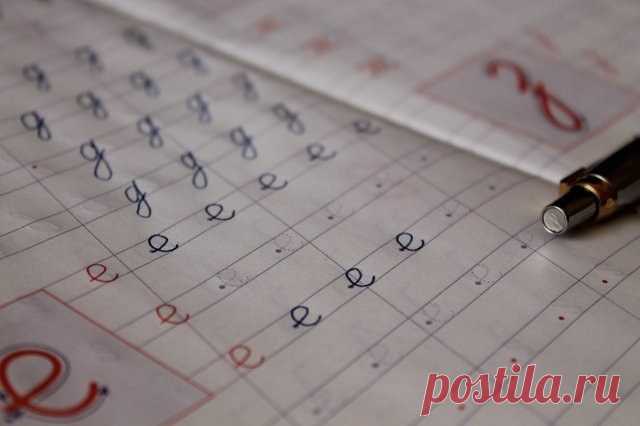 з
д д д
д д д д
д д д д
д д д д
е е е е е е
е
е е е е
е
postila.ru